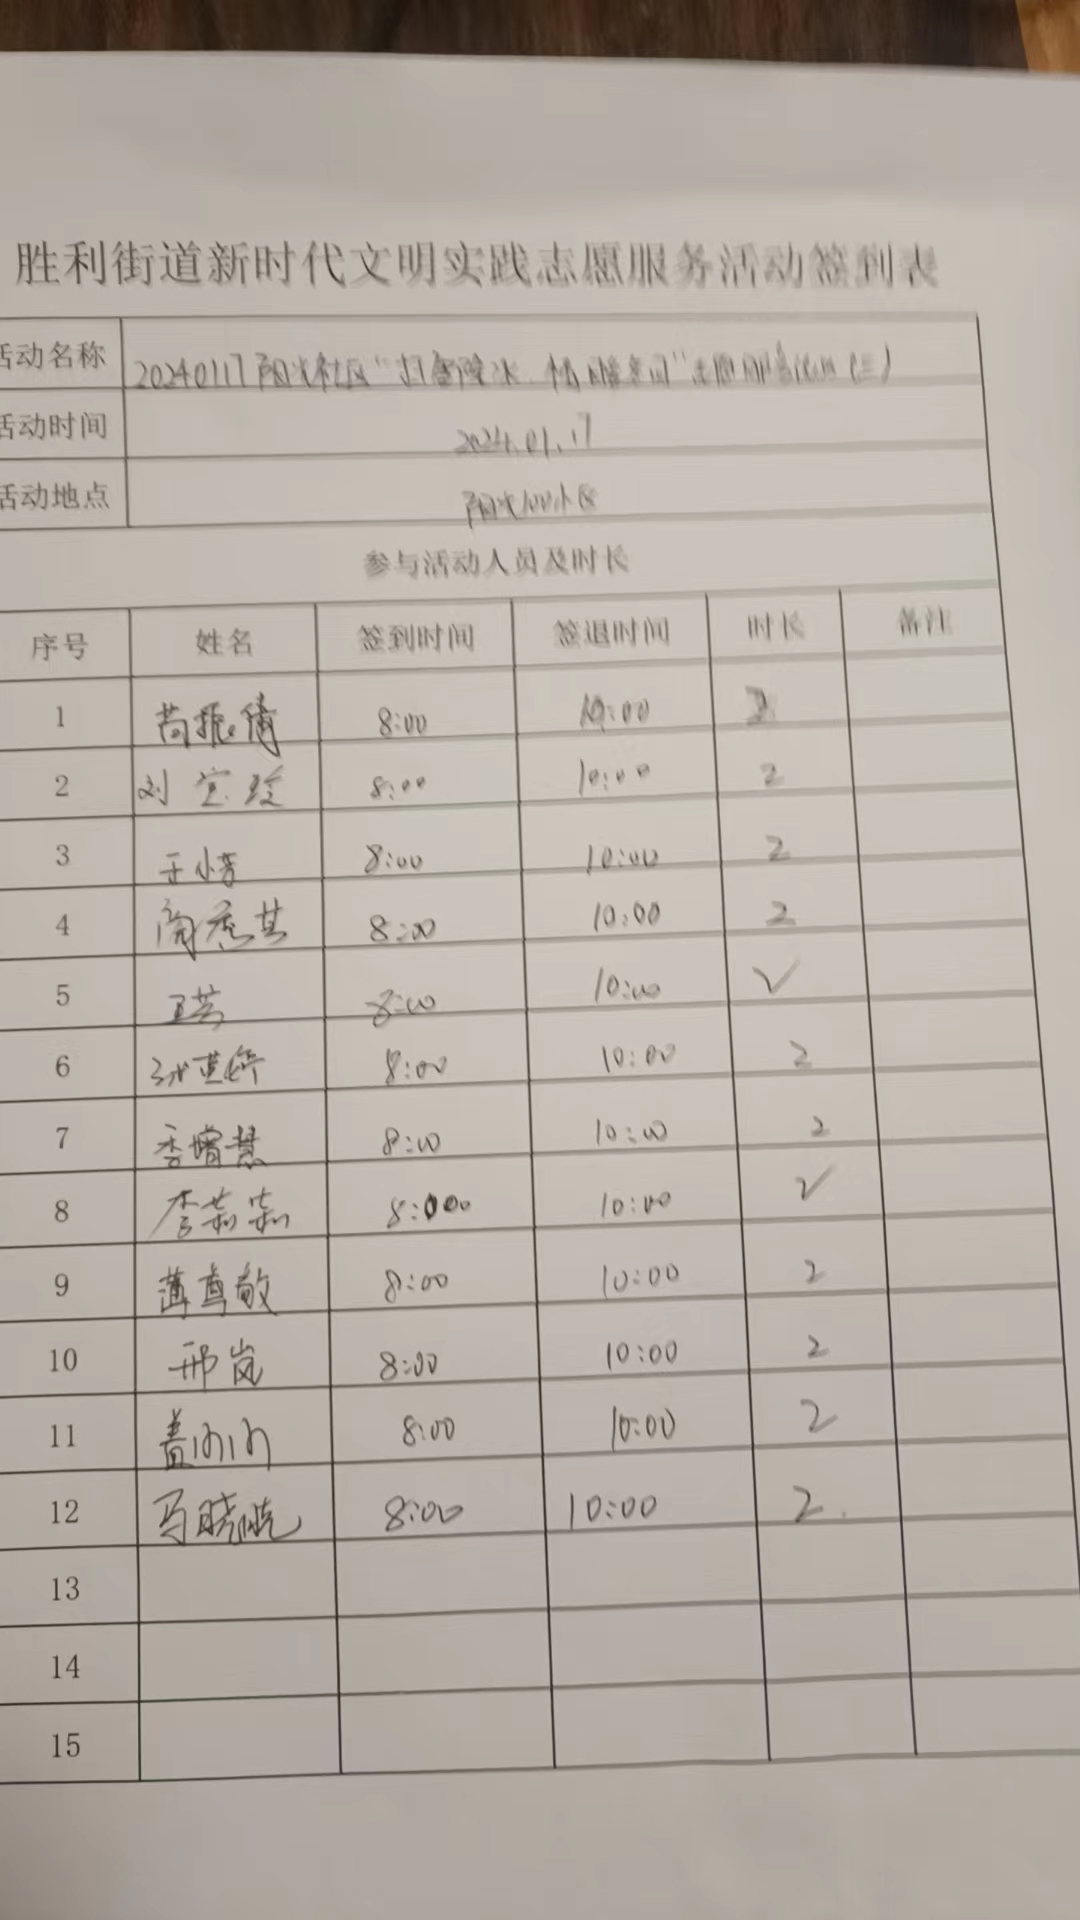 胜利街道新时代文明实践志愿服务活动签到表
活动名称 20240117阳光社区“扫雪除冰 情暖冬日”志愿服务活动(三)
活动时间 2024.01.17
活动地点 阳光100小区
参与活动人员及时长
序号 姓名 签到时间 签退时间 时长 备注
1 8:00 10:00 2
2 刘 8:00 10:00 2
3 于小芳 8:00 10:00 2
4 8:00 10:00 2
5 8:00 10:00 √
6 8:00 10:00 2
7 李增慧 8:00 10:00 2
8 李莉莉 8:000 10:00 √
9 8:00 10:00 2
10 邢岚 8:00 10:00 2
11 盖 8:00 10:00 2
12 马晓 8:00 10:00 2
13
14
15